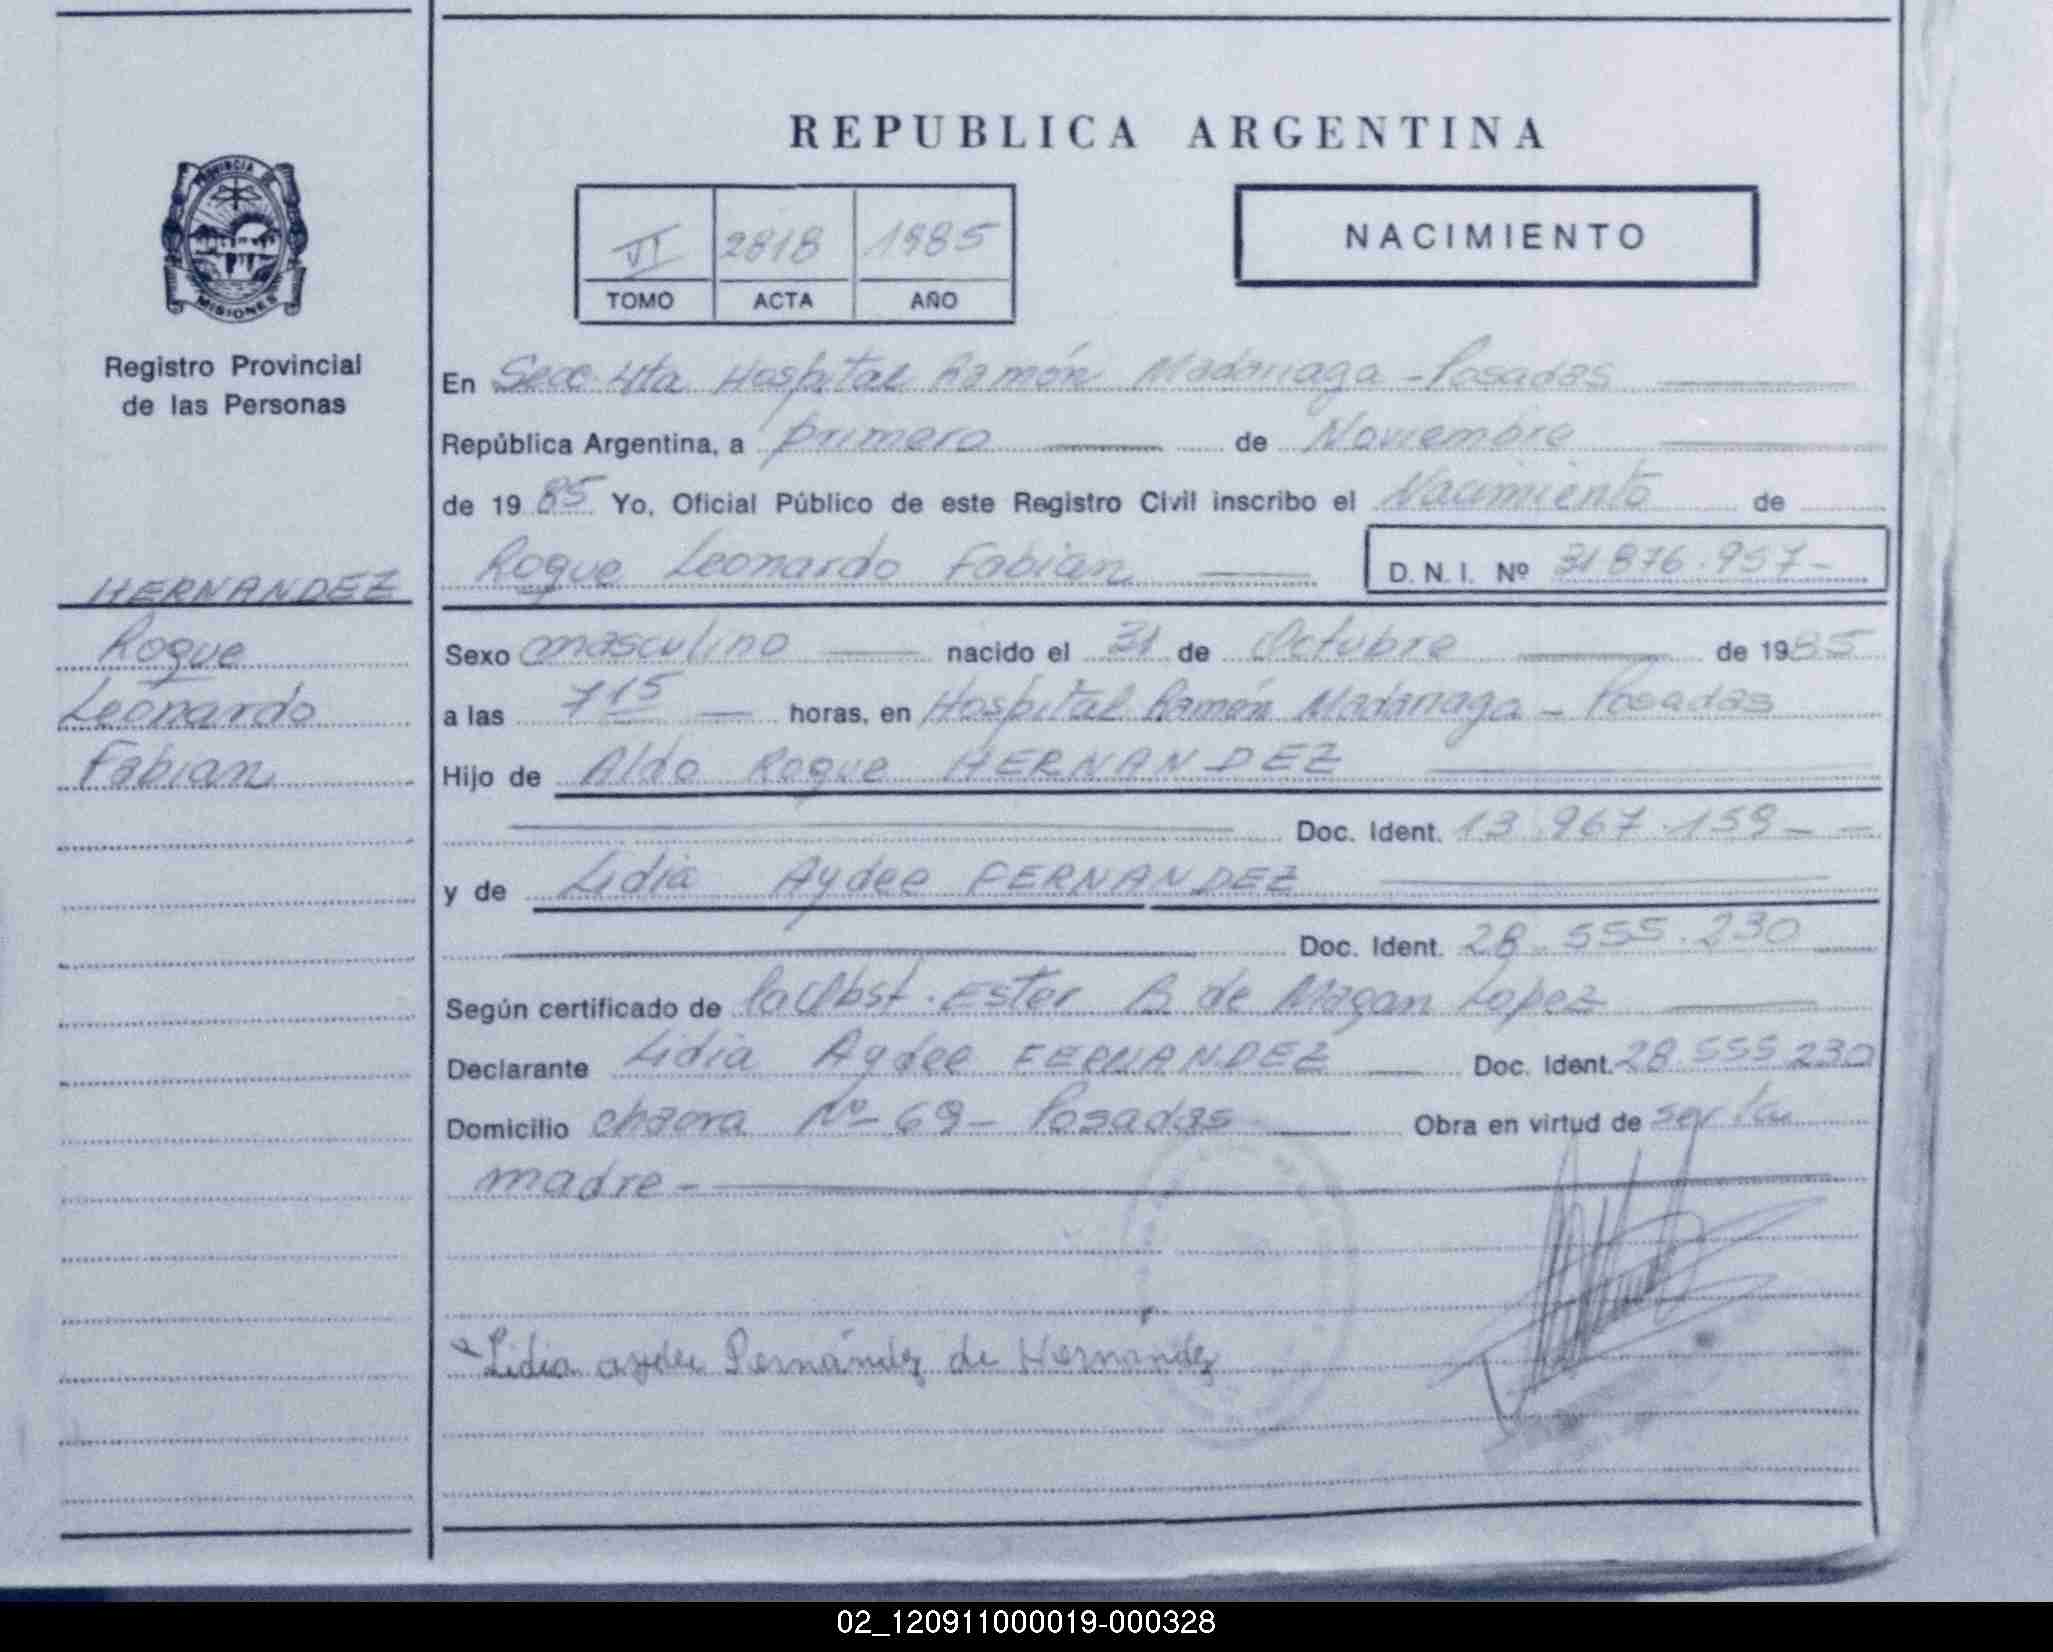 PROVINCIA DE
MISIONES
Registro Provincial
de las Personas
HERNANDEZ
Roque
Leonardo
Fabian
REPUBLICA ARGENTINA
VI 2818 1985
TOMO ACTA AÑO
NACIMIENTO
En Secc. 4ta Hospital Ramón Madariaga - Posadas
República Argentina, a primero de Noviembre
de 19 85 Yo, Oficial Público de este Registro Civil inscribo el Nacimiento de
Roque Leonardo Fabian D.N.I. Nº 31876.957-
Sexo masculino nacido el 31 de Octubre de 1985
a las 7 15 horas, en Hospital Ramón Madariaga - Posadas
Hijo de Aldo Roque HERNANDEZ
Doc. Ident. 13.967.159
y de Lidia Aydee FERNANDEZ
Doc. Ident. 28.555.230
Según certificado de la Obst. Ester B. de Magan Lopez
Declarante Lidia Aydee FERNANDEZ Doc. Ident. 28.555.230
Domicilio chacra Nº 69 - Posadas Obra en virtud de ser la
madre -
Lidia aydee Fernández de Hernández
02_120911000019-000328